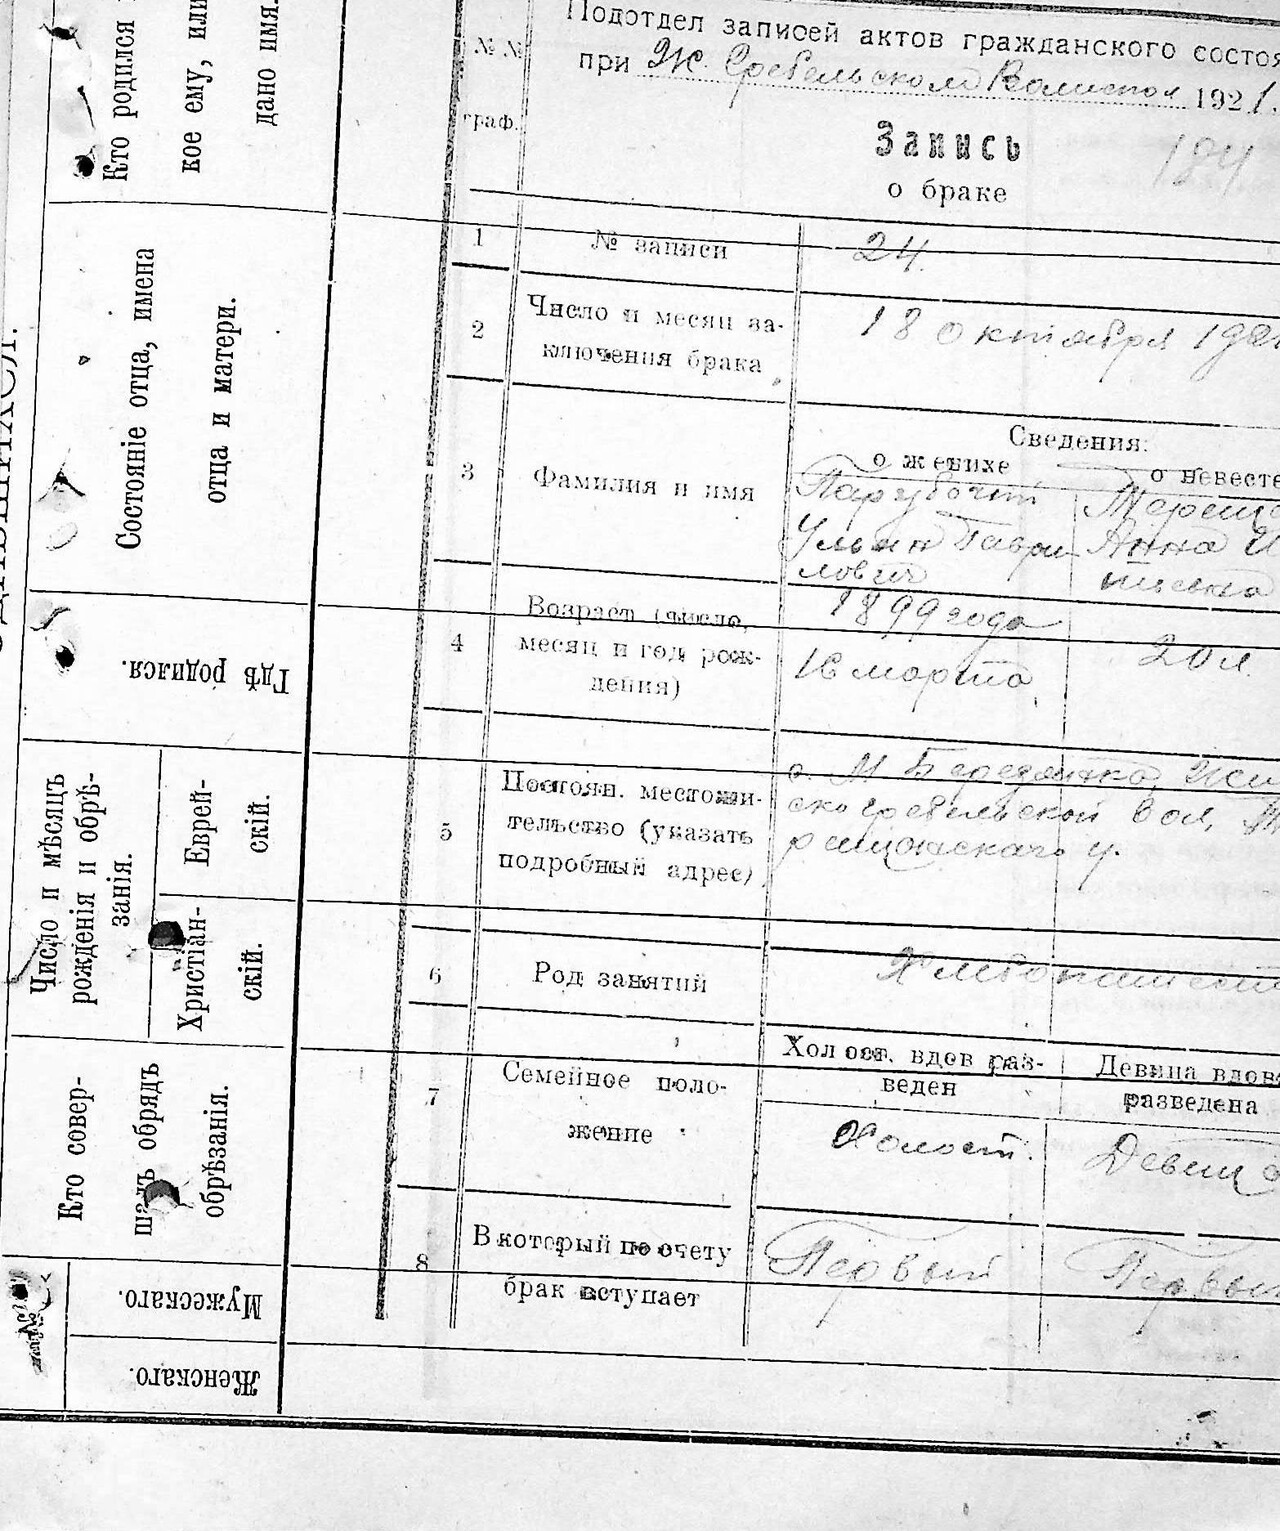 Кто родился
кое ему, или
дано имя.
Состояніе отца, имена
отца и матери.
Гдѣ родился.
Число и мѣсяцъ
рожденія и обрѣ-
занія.
Еврей-
скій.
Христіан-
скій.
Кто совер-
шалъ обрядъ
обрѣзанія.
Мужескаго.
Женскаго.
Подотдел записей актов гражданского состоя
при Ж. Гребельском Волиспол 1921.
№№
граф.
Запись
о браке
184
1 № записи 24.
2 Число и месяц за-
ключения брака
18 октября 192
Сведения:
о женихе о невесте
3 Фамилия и имя
Парубочий
Ульян Гаври-
лович
Тереще
Анна И
4 Возраст (число,
месяц и год рож-
дения)
1899 года
16 марта
20 л.
5 Постоян. местожи-
тельство (указать
подробный адрес)
с. М Березянка, Жи
ско гребельской вол,
6 Род занятий Хлебопашест
7 Семейное поло-
жение
Холост. вдов раз-
веден
Девица вдов
разведена
Холост. Девица
8 В который по счету
брак вступает
Первый Первый